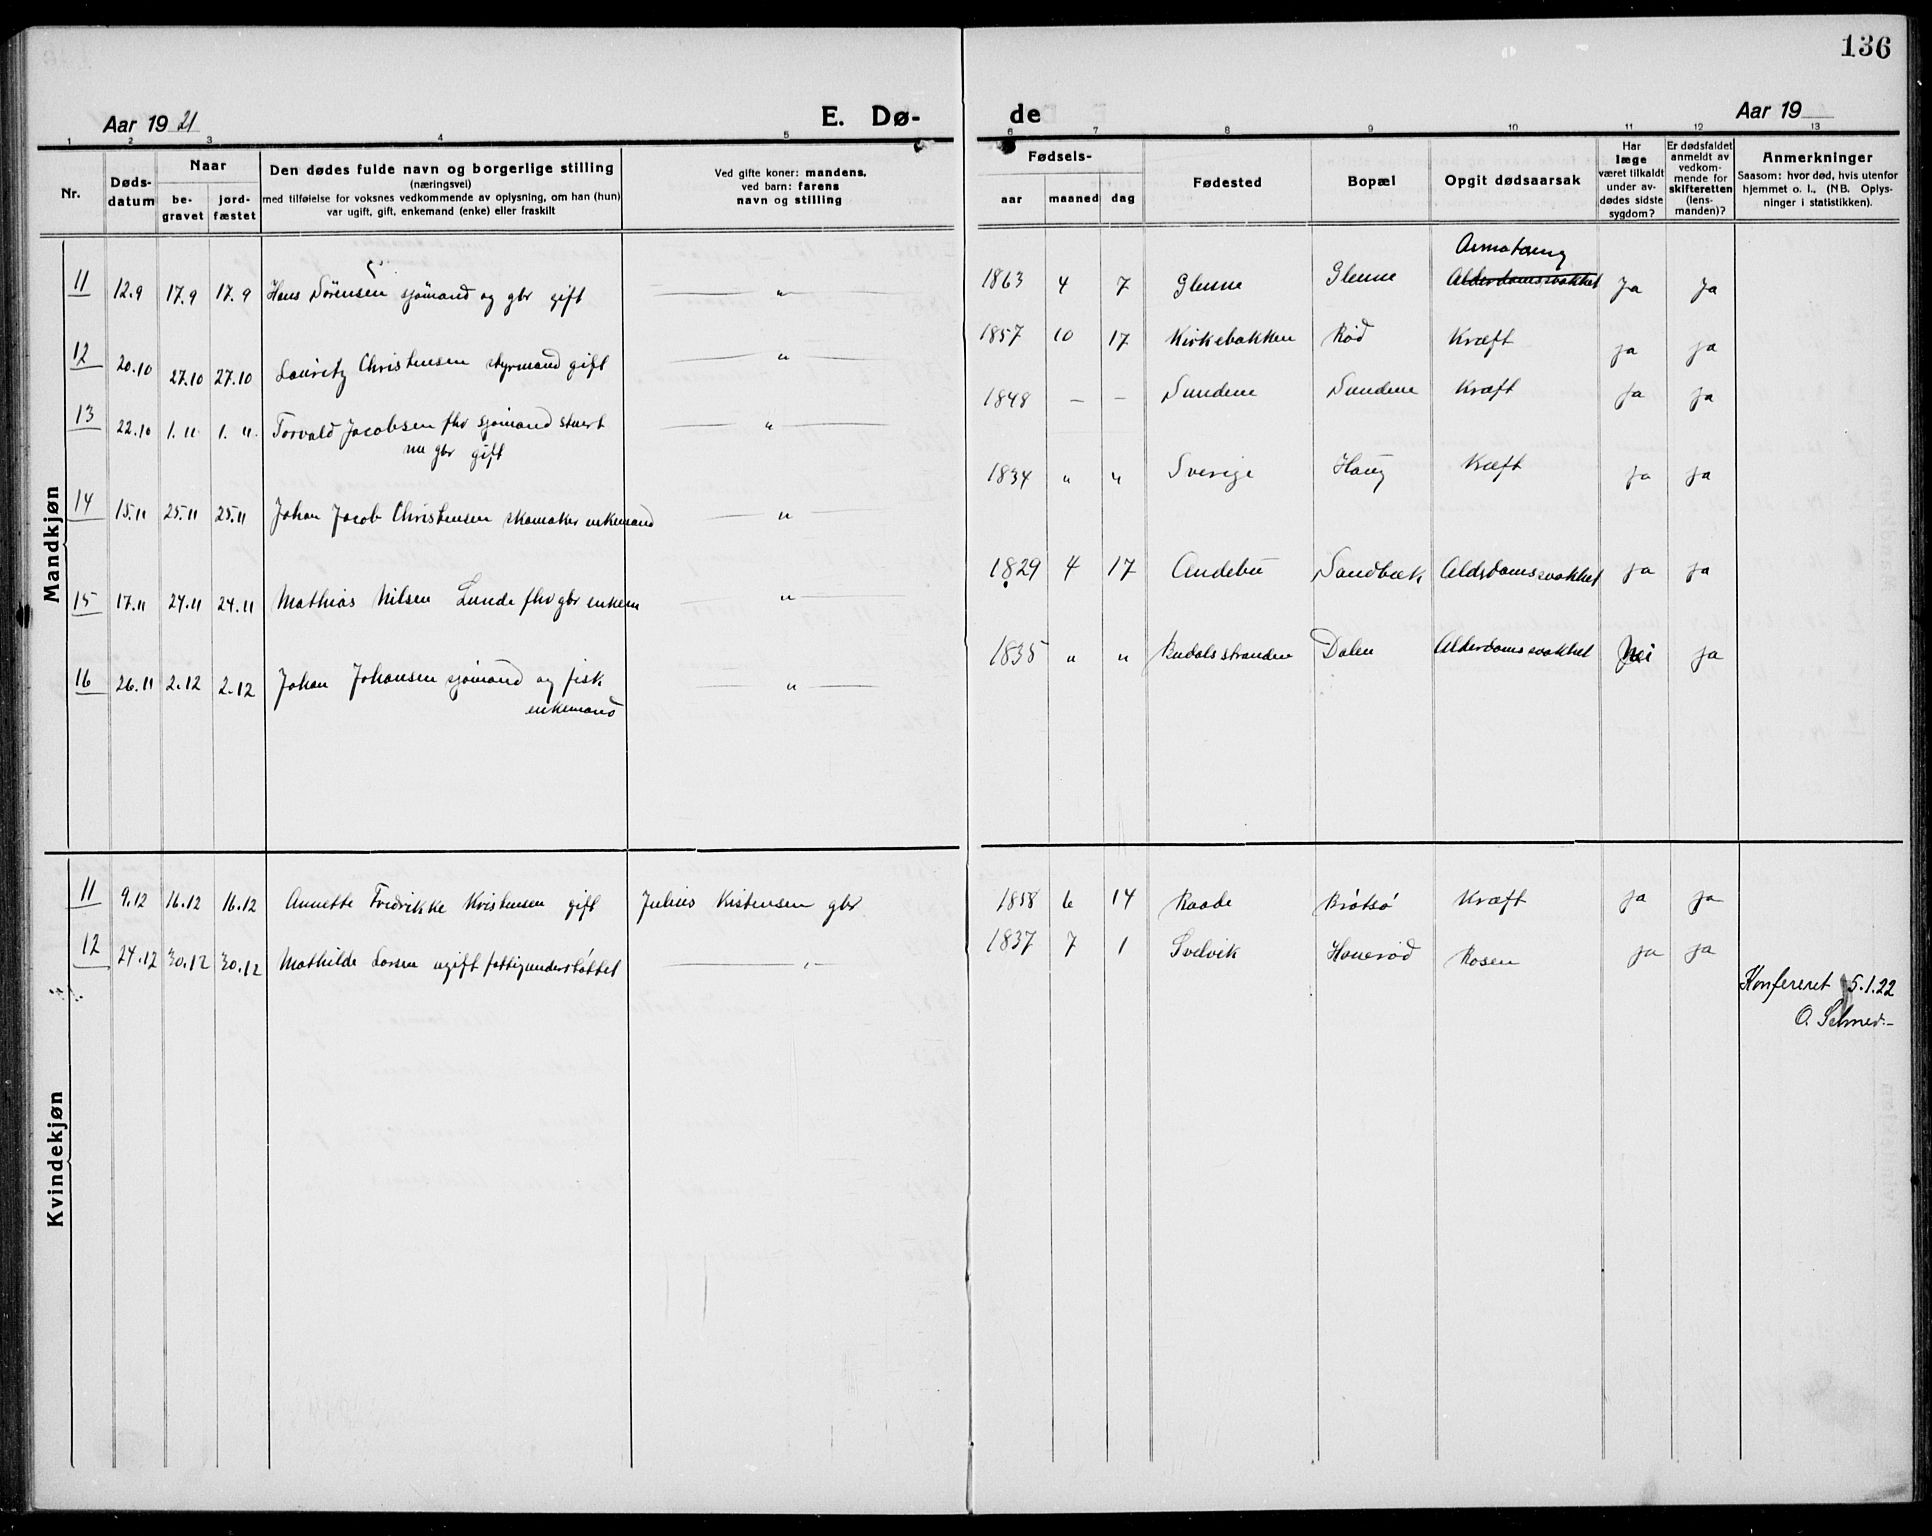 136
Aar 1921 E. Dø- de Aar 19
1 2 3 4 5 6 7 8 9 10 11 12 13
Nr.
Døds-
datum
Naar
be-
gravet
jord-
fæstet
Den dødes fulde navn og borgerlige stilling
(næringsvei)
med tilføielse for voksnes vedkommende av oplysning, om han (hun)
var ugift, gift, enkemand (enke) eller fraskilt
Ved gifte koner: mandens,
ved barn: farens
navn og stilling
Fødsels-
aar maaned dag
Fødested
Bopæl
Opgit dødsaarsak
Har
læge
været tilkaldt
under av-
dødes sidste
sygdom?
Er dødsfaldet
anmeldt av
vedkom-
mende for
skifteretten
(lens-
manden)?
Anmerkninger
Saasom: hvor død, hvis utenfor
hjemmet o. l., (NB. Oplys-
ninger i statistikken).
Mandkjøn
11 12.9 17.9 17.9 Hans Sørensen sjømand og gbr gift — " — 1863 4 7 Glenne Glenne Alderdomssvakhet Ja Ja
12 20.10 27.10 27.10 Lauritz Christensen styrmand gift — " — 1857 10 17 Kirkebakken Rød Kræft ja ja
13 22.10 1.11. 1.11. Torvald Jacobsen fhv sjømand stuert — " — 1848 — — Sundene Sundene Kræft Ja Ja
nu gbr gift
14 15.11 25.11 25.11 Johan Jacob Christensen skomaker enkemand — " — 1834 " " Sverige Haug Kræft ja ja
15 17.11 24.11 24.11 Mathias Nilsen Lunde fhv gbr enkem — " — 1829 4 17 Andebu Sandbæk Aldsdomssvakhet ja ja
16 26.11 2.12 2.12 Johan Johansen sjømand og fisk — " — 1835 " " Dalen Alderdomssvakhet Nei ja
enkemand
Kvindekjøn
11 9.12 16.12 16.12 Annette Fredrikke Kristensen gift Julius Kistensen gbr 1858 6 14 Raade Brøtsø Kræft ja ja
12 24.12 30.12 30.12 Mathilde Larsen ugift fattigunderstøttet — " — 1837 7 1 Svelvik Hauerød Rosen ja ja
Konfereret 5.1.22